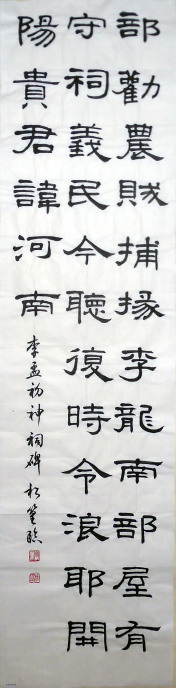 部勸農賊捕掾李龍南部屋有
守祠義民今聽復時令浪耶開
陽貴君諱河南
李孟初神祠碑 松筌臨